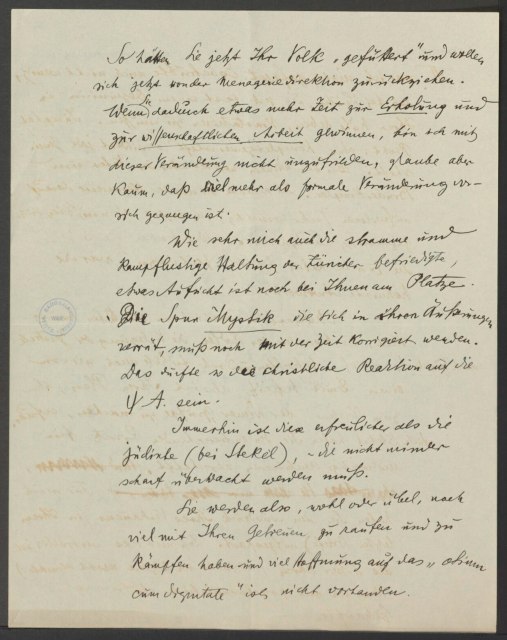 So hätten Sie jetzt Ihr Volk „gefüttert" und wollen
sich jetzt von der Menageriedirektion zurückziehen.
Wenn Sie dadurch etwas mehr Zeit zur Erholung und
zur wissenschaftlichen Arbeit gewinnen, bin ich mit
dieser Veränderung nicht unzufrieden, glaube aber
kaum, daß viel mehr als formale Veränderung vor-
sich gegangen ist.
Wie sehr mich auch die stramme und
kampflustige Haltung der Züricher befriedigte,
etwas Aufsicht ist noch bei Ihnen am Platze.
Die Spur Mystik die sich in ihren Äußerungen
verrät, muß noch mit der Zeit korrigiert werden.
Das dürfte so die christliche Reaktion auf die
ΨA. sein.
Immerhin ist diese erfreulicher als die
jüdische (bei Stekel), – die nicht minder
scharf überwacht werden muß.
Sie werden also, wohl oder übel, noch
viel mit Ihren Getreuen, zu raufen und zu
kämpfen haben und viel Hoffnung auf das „otium
cum dignitate" ist nicht vorhanden.